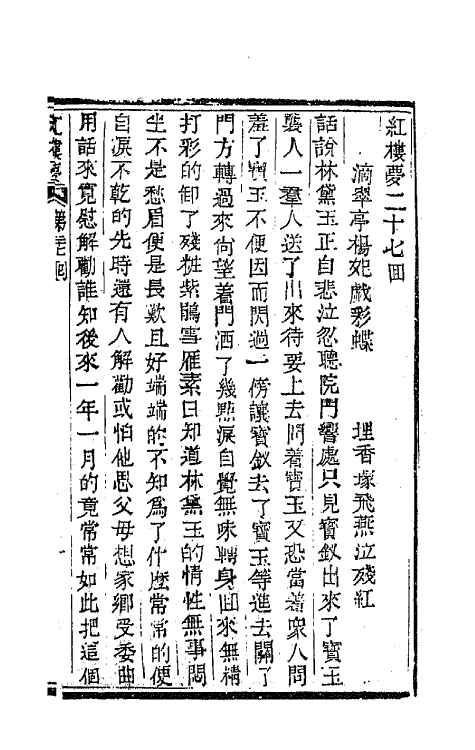 紅樓夢二十七回
滴翠亭楊妃戲彩蝶　埋香塚飛燕泣殘紅
話說林黛玉正自悲泣忽聽院門響處只見寶釵出來了寶玉
襲人一羣人送了出來待要上去問着寶玉又恐當着衆人問
羞了寶玉不便因而閃過一傍讓寶釵去了寶玉等進去關了
門方轉過來向望着門洒了幾點淚自覺無味轉身回來無精
打彩的卸了殘粧紫鵑雪雁素日知道林黛玉的情性無事悶
坐不是愁眉便是長歎且好端端的不知爲了什麼常常的便
自淚不乾的先時還有人解勸或怕他思父母想家鄉受委曲
用話來寬慰解勸誰知後來一年一月的竟常常如此把這個
紅樓夢 第二十七回